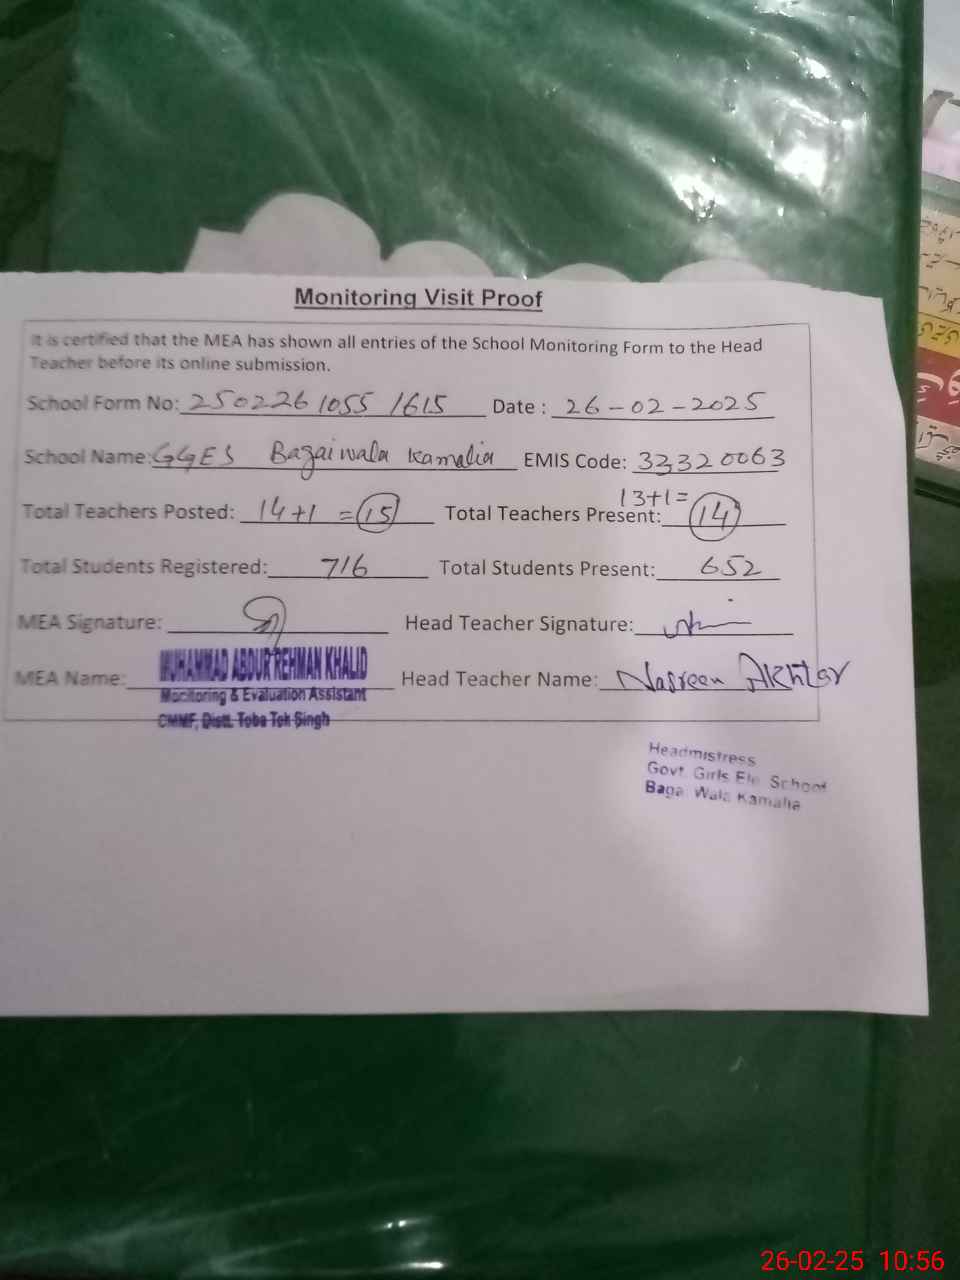 Monitoring Visit Proof
It is certified that the MEA has shown all entries of the School Monitoring Form to the Head
Teacher before its online submission.
School Form No: 250226 1055 1615 Date : 26-02-2025
School Name: GGES Bagaiwala Kamalia EMIS Code: 33320063
Total Teachers Posted: 14+1 = 15 Total Teachers Present: 13+1= 14
Total Students Registered: 716 Total Students Present: 652
MEA Signature: Head Teacher Signature:
MEA Name: MUHAMMAD ABDUR REHMAN KHALID Head Teacher Name: Nasreen Akhtar
Monitoring & Evaluation Assistant
CMMF, Distt. Toba Tek Singh
Headmistress
Govt. Girls Ele. School
Bagai Wala Kamalia
26-02-25 10:56